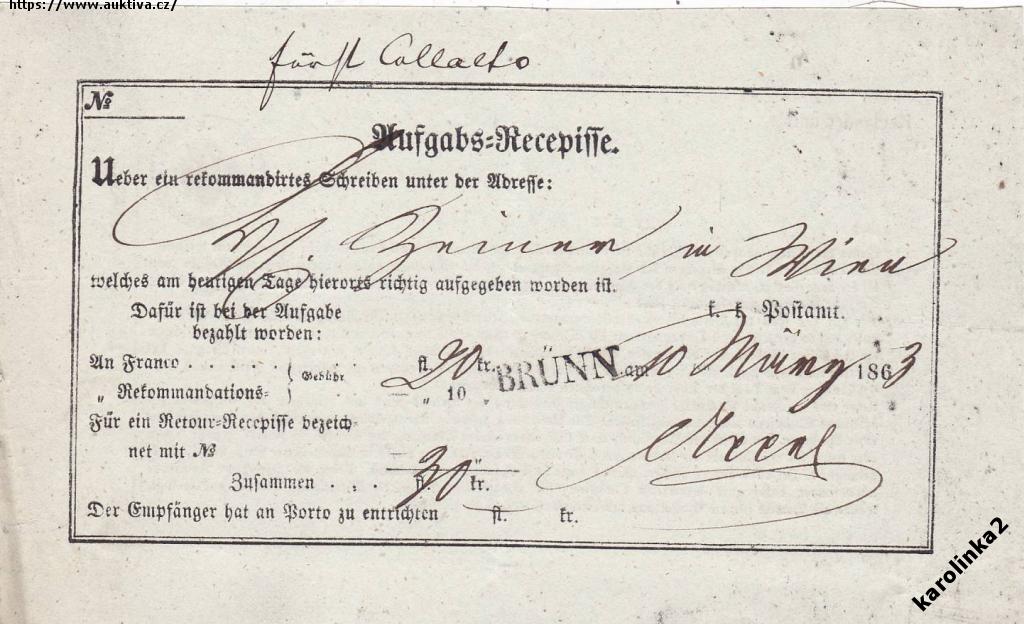 https://www.auktiva.cz/
fürst Collalto
No
Aufgabs-Recepisse.
Ueber ein rekommandirtes Schreiben unter der Adresse:
Zeiner in Wien
welches am heutigen Tage hierorts richtig aufgegeben worden ist.
Dafür ist bei der Aufgabe k. k. Postamt.
bezahlt worden:
An Franco . . . . . Gebühr fl. 20 kr. BRÜNN am 10 März 1863
„ Rekommandations- „ 10 „
Für ein Retour-Recepisse bezeich-
net mit No „
Zusammen . . . fl. 30 kr.
Der Empfänger hat an Porto zu entrichten fl. kr.
karolinka2